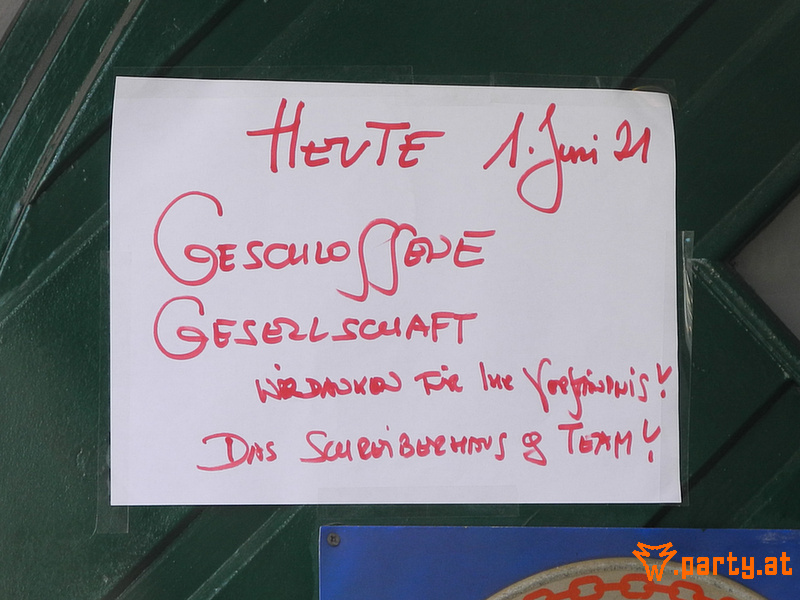 HEUTE 1. Juni 21
GESCHLOSSENE
GESELLSCHAFT
WIR DANKEN FÜR IHR VERSTÄNDNIS!
DAS SCHREIBERHAUS & TEAM!
party.at